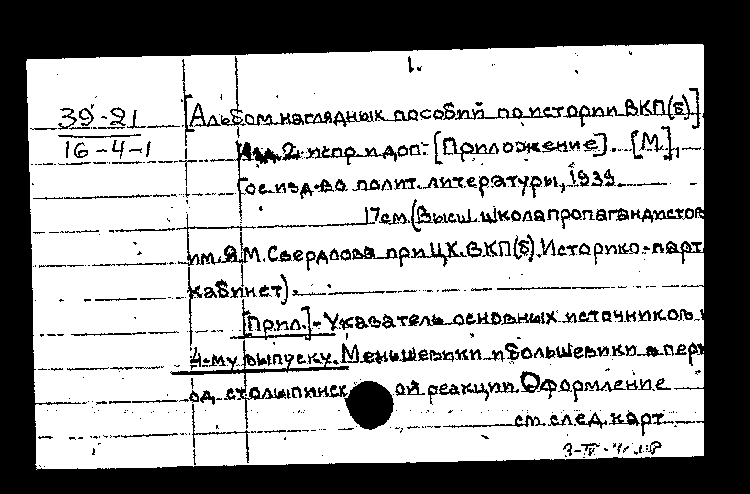 1.
39-21
16-4-1
[Альбом наглядных пособий по истории ВКП(б)].
Изд. 2. испр. и доп. [Приложение]. [М],
Гос. изд-во полит. литературы, 1939.
17 см. (Высш. школа пропагандистов
им. Я.М. Свердлова при ЦК. ВКП(б). Историко-парт.
кабинет).
[Прил.] - Указатель основных источников
4-му выпуску. Меньшевики и большевики в пери
од столыпинской реакции. Оформление
см. след. карт.